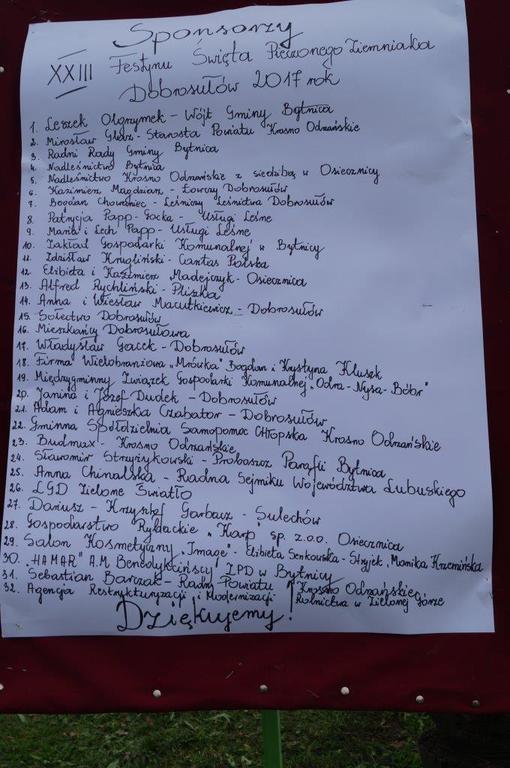 Sponsorzy
XXIII Festynu Święta Pieczonego Ziemniaka
Dobrosułów 2017 rok
1. Leszek Olgrymek - Wójt Gminy Bytnica
2. Mirosław Glaz - Starosta Powiatu Krosno Odrzańskie
3. Radni Rady Gminy Bytnica
4. Nadleśnictwo Bytnica
5. Nadleśnictwo Krosno Odrzańskie z siedzibą w Osiecznicy
6. Kazimierz Magdziarz - Łowczy Dobrosułów
7. Bogdan Chowaniec - Leśniczy Leśnictwa Dobrosułów
8. Patrycja Papp-Gocka - Usługi Leśne
9. Maria i Lech Papp - Usługi Leśne
10. Zakład Gospodarki Komunalnej w Bytnicy
11. Zdzisław Knigliński - Cantas Polska
12. Elżbieta i Kazimierz Madejczyk - Osiecznica
13. Alfred Rychliński - Pliszka
14. Anna i Wiesław Macutkiewicz - Dobrosułów
15. Sołectwo Dobrosułów
16. Mieszkańcy Dobrosułowa
17. Władysław Gacek - Dobrosułów
18. Firma Wielobranżowa "Mrówka" Bogdan i Krystyna Kłusek
19. Międzygminny Związek Gospodarki Komunalnej "Odra-Nysa-Bóbr"
20. Janina i Józef Dudek - Dobrosułów
21. Adam i Agnieszka Czabator - Dobrosułów
22. Gminna Spółdzielnia Samopomoc Chłopska Krosno Odrzańskie
23. Budmax - Krosno Odrzańskie
24. Sławomir Strzyżykowski - Proboszcz Parafii Bytnica
25. Anna Chinalska - Radna Sejmiku Województwa Lubuskiego
26. LGD Zielone Światło
27. Dariusz - Krzysztof Garbacz - Sulechów
28. Gospodarstwo Rybackie "Karp" sp. z.o.o. Osiecznica
29. Salon Kosmetyczny "Image" - Elżbieta Senkowska-Stryjek, Monika Krzemińska
30. "HAMAR" A.M. Benedykcińscy ZPD w Bytnicy
31. Sebastian Barczak - Radny Powiatu Krosno Odrzańskiego
32. Agencja Restrukturyzacji i Modernizacji Rolnictwa w Zielonej Górze
Dziękujemy!